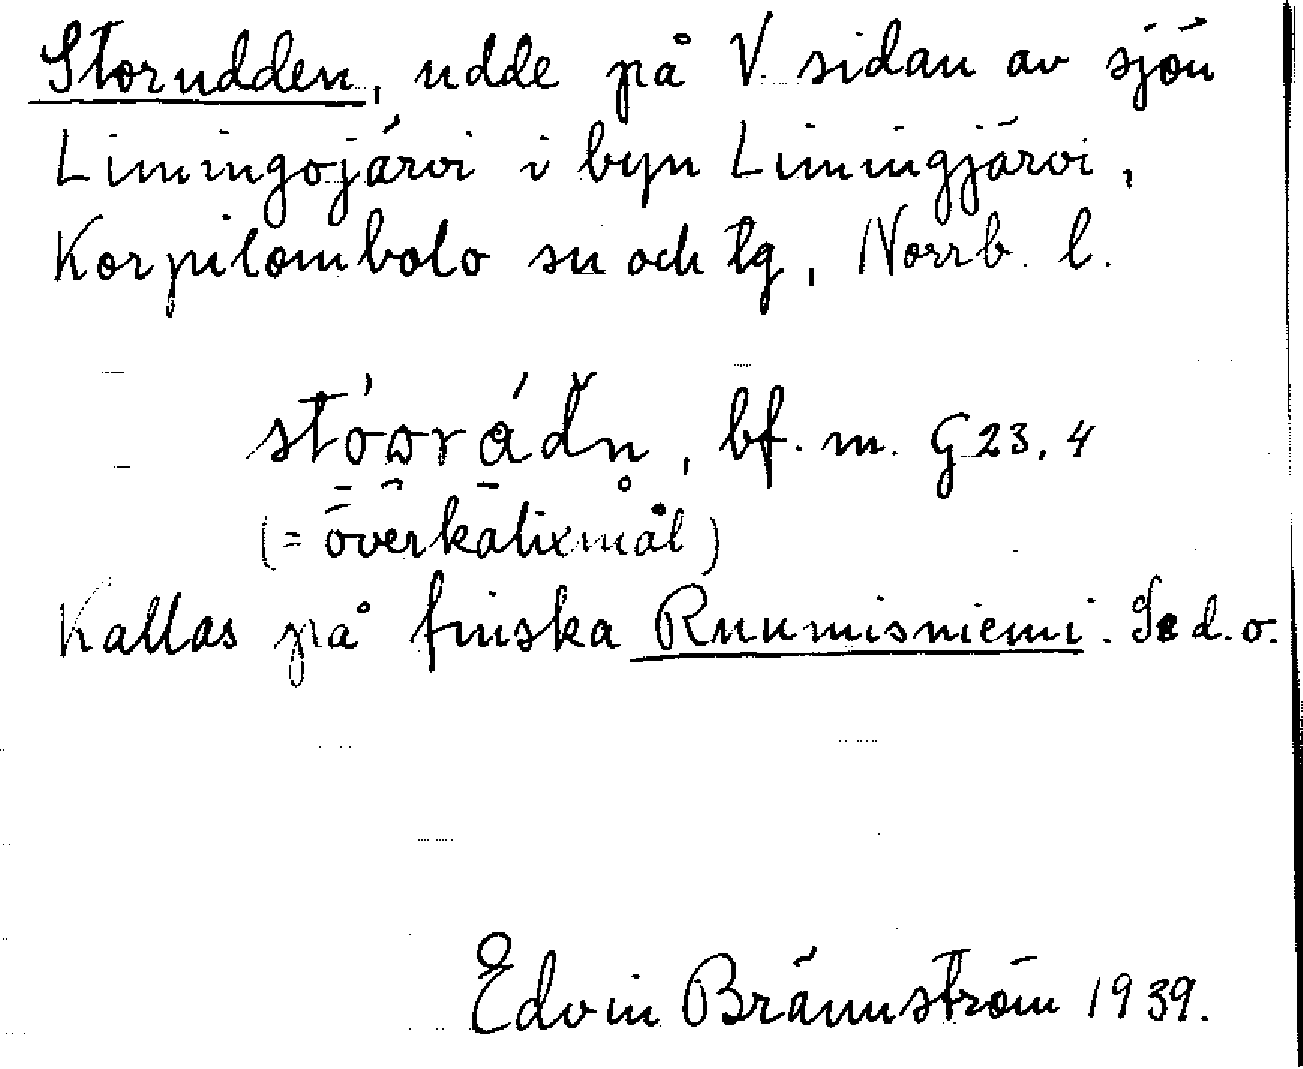 Storudden, udde på V. sidan av sjön
Limingojärvi i byn Limingjärvi,
Korpilombolo sn och tg, Norrb. l.
bf. m. G 23, 4
(= överkalixmål)
Kallas på finska Ruumisniemi. Se d. o.
Edvin Brännström 1939.